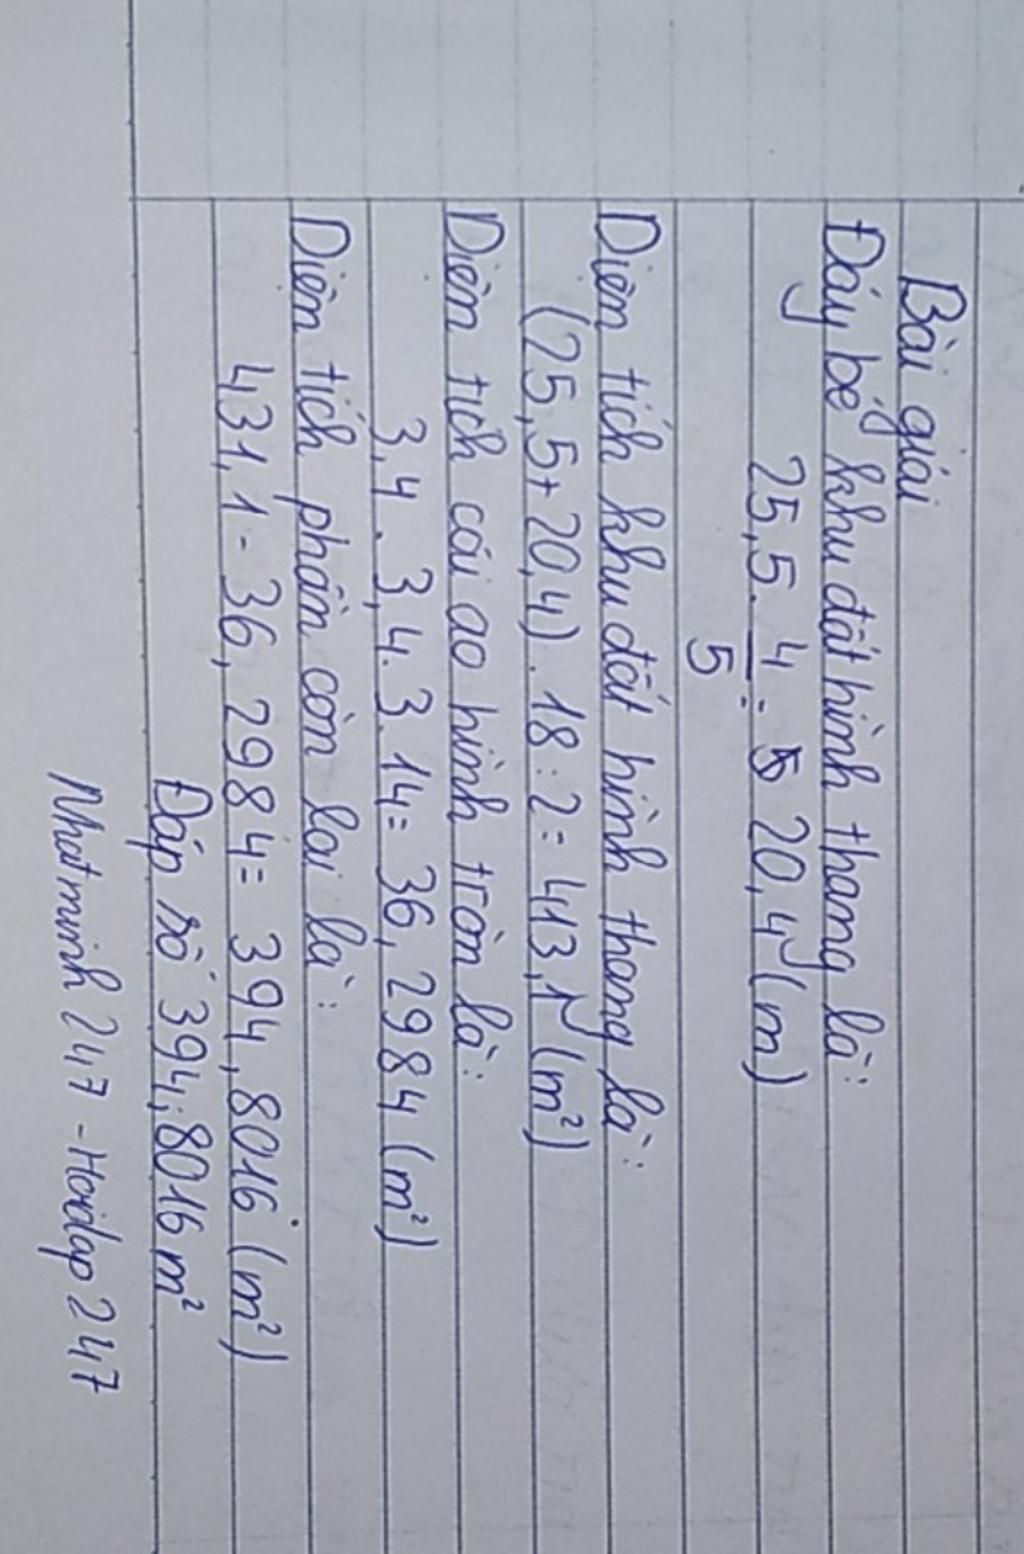 Bài giải
Đáy bé khu đất hình thang là:
25,5 . 4/5 = 20,4 (m)
Diện tích khu đất hình thang là:
(25,5+ 20,4) . 18 : 2 = 413,1 (m²)
Diện tích cái ao hình tròn là:
3,4 . 3,4 . 3.14= 36,2984 (m²)
Diện tích phần còn lại là:
431,1 - 36,2984 = 394,8016 (m²)
Đáp số 394,8016 m²
Nhatminh 247 - Hoidap 247